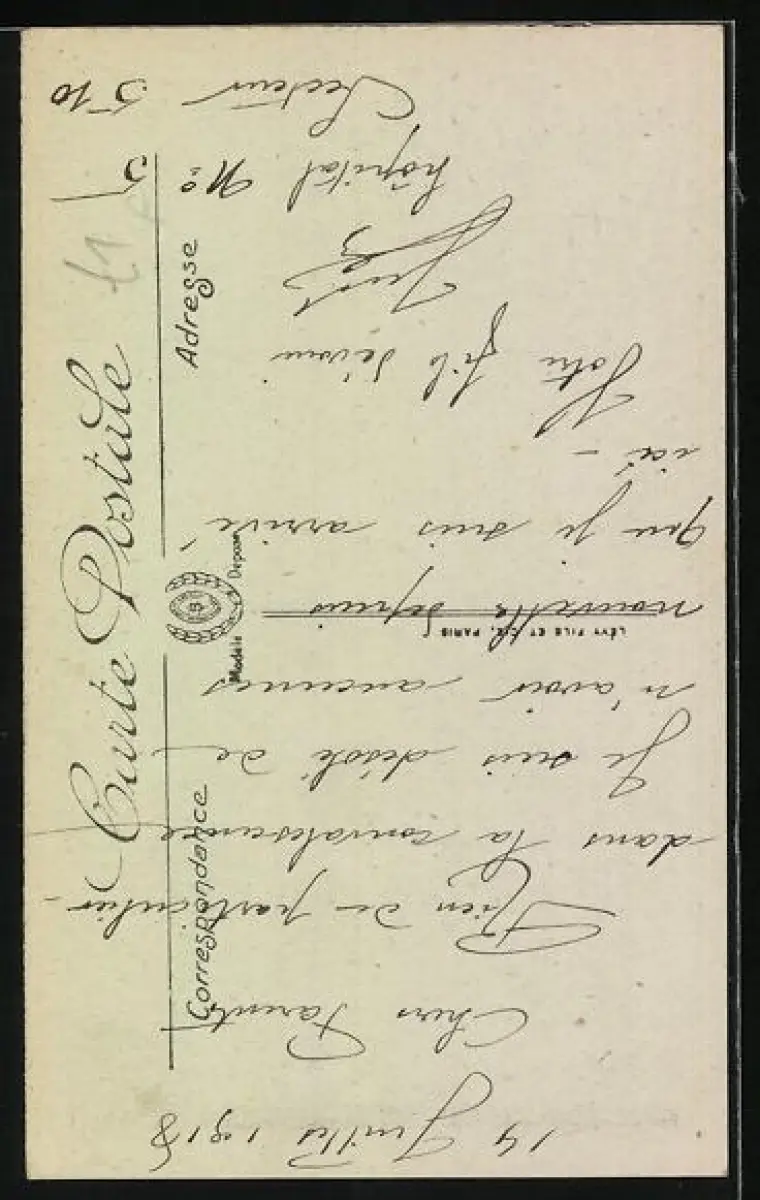 Carte Postale
Correspondance
Adresse
Modèle Déposé
LÉVY FILS ET CIE, PARIS
14 Juillet 1918
Chers Parents
Rien de particulier
dans la convalescence
Je suis désolé de
n'avoir aucunes
nouvelles depuis
que je suis arrivé
ici -
Votre fils dévoué
hôpital No 5
Secteur 510